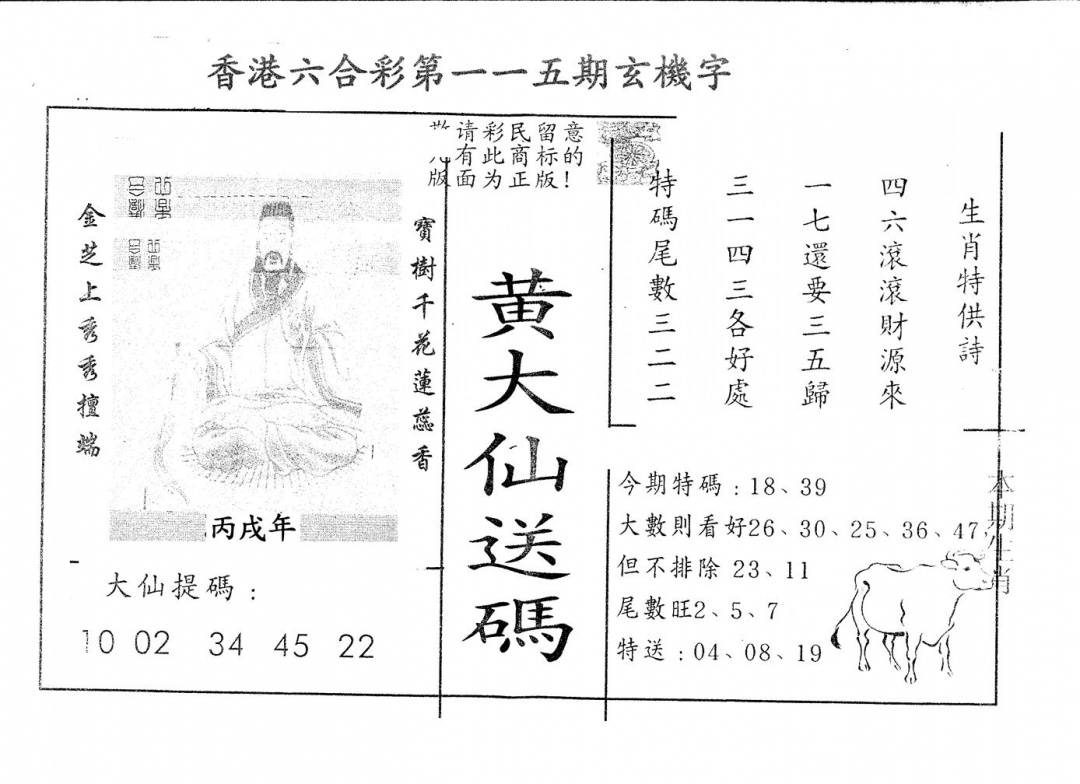 香港六合彩第一一五期玄機字
请彩民留意
有此商标的
版面为正版!
寶樹千花蓮蕊香
金芝上秀秀擅端
丙戌年
大仙提碼：
10 02 34 45 22
黄大仙送碼
生肖特供詩
四六滾滾財源來
一七還要三五歸
三一四三各好處
特碼尾數三二二
今期特碼：18、39
大數則看好26、30、25、36、47,
但不排除 23、11
尾數旺2、5、7
特送：04、08、19
本期生肖